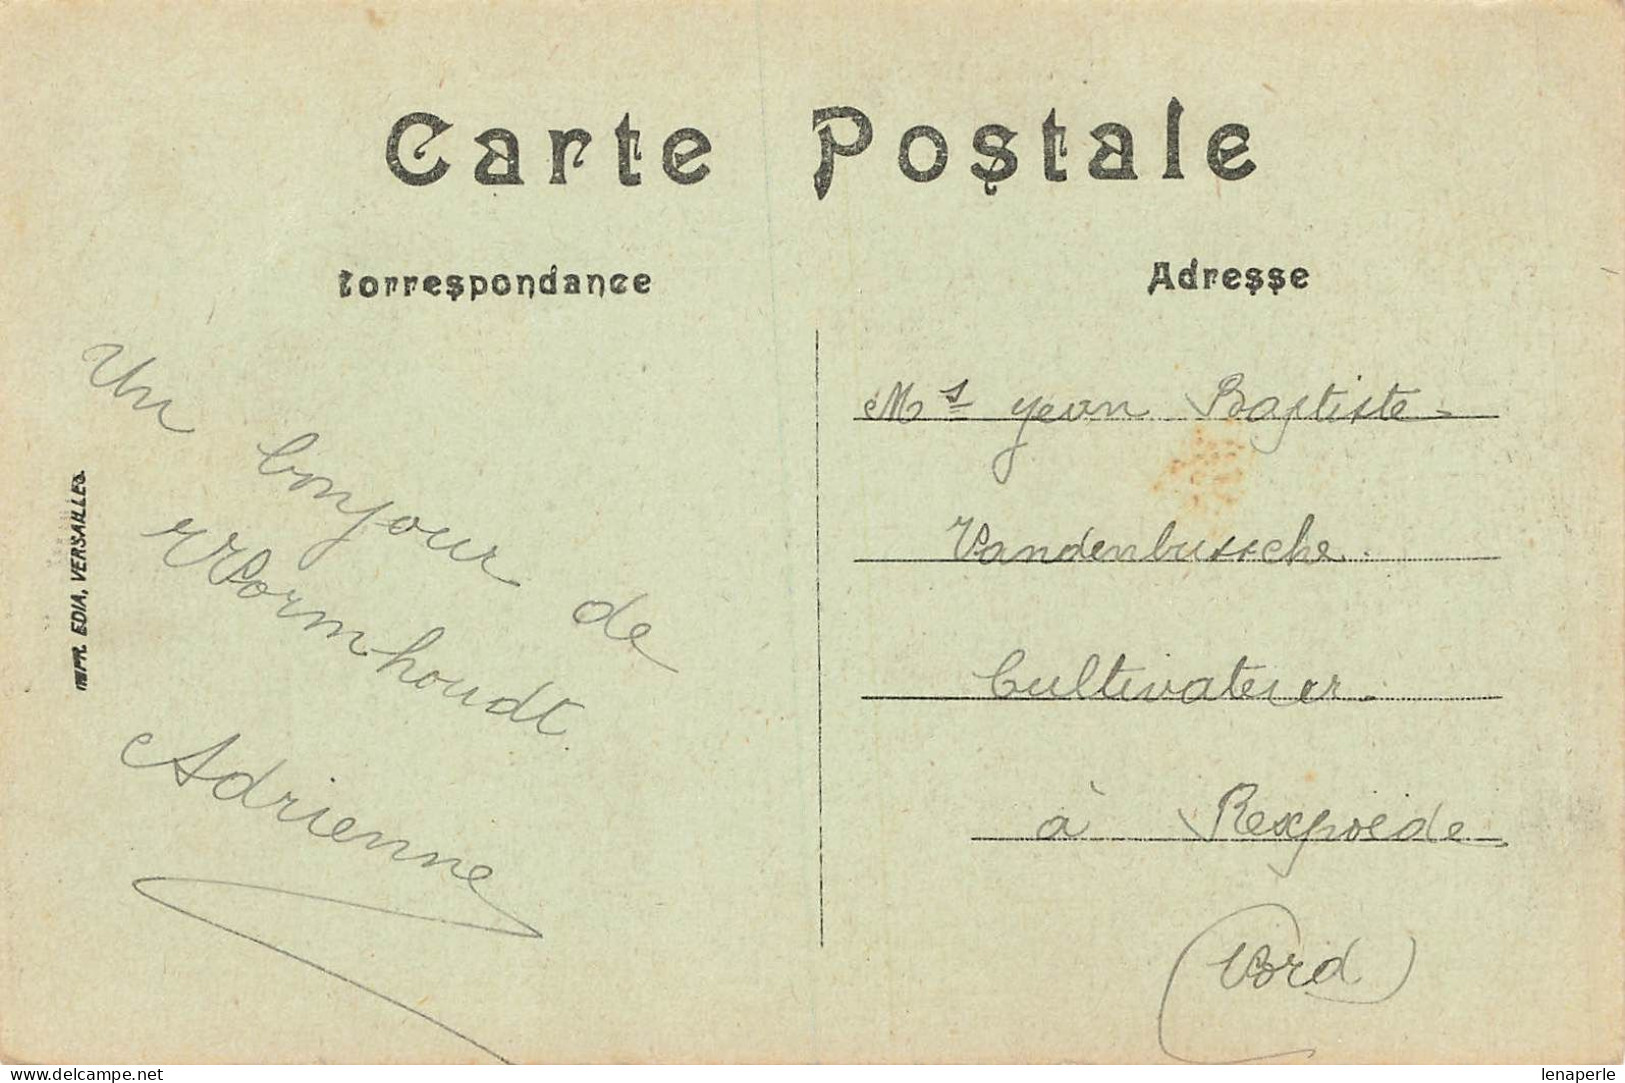 Carte Postale
Correspondance
Adresse
Un bonjour de
Wormhoudt.
Adrienne
IMPR. EDIA, VERSAILLES.
Mr Jean Baptiste
Vandenbussche
Cultivateur
à Rexpoëde
(Nord)
www.delcampe.net
lenaperle